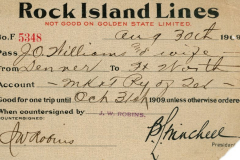 Rock Island Lines
NOT GOOD ON GOLDEN STATE LIMITED.
No. F 5348 Aug 30th 190
Pass J.O. Williams & wife
From Denver To Ft Worth
Account - MK&T Ry of Tex -
Good for one trip until Oct 31st 1909 unless otherwise ordere
When countersigned by J. W. ROBINS.
COUNTERSIGNED:
J W Robins
President